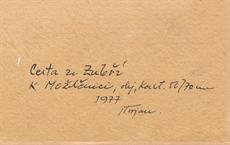 Cesta ze Zubří
K Mošťanici, olej, kart. 50/70 cm
1977